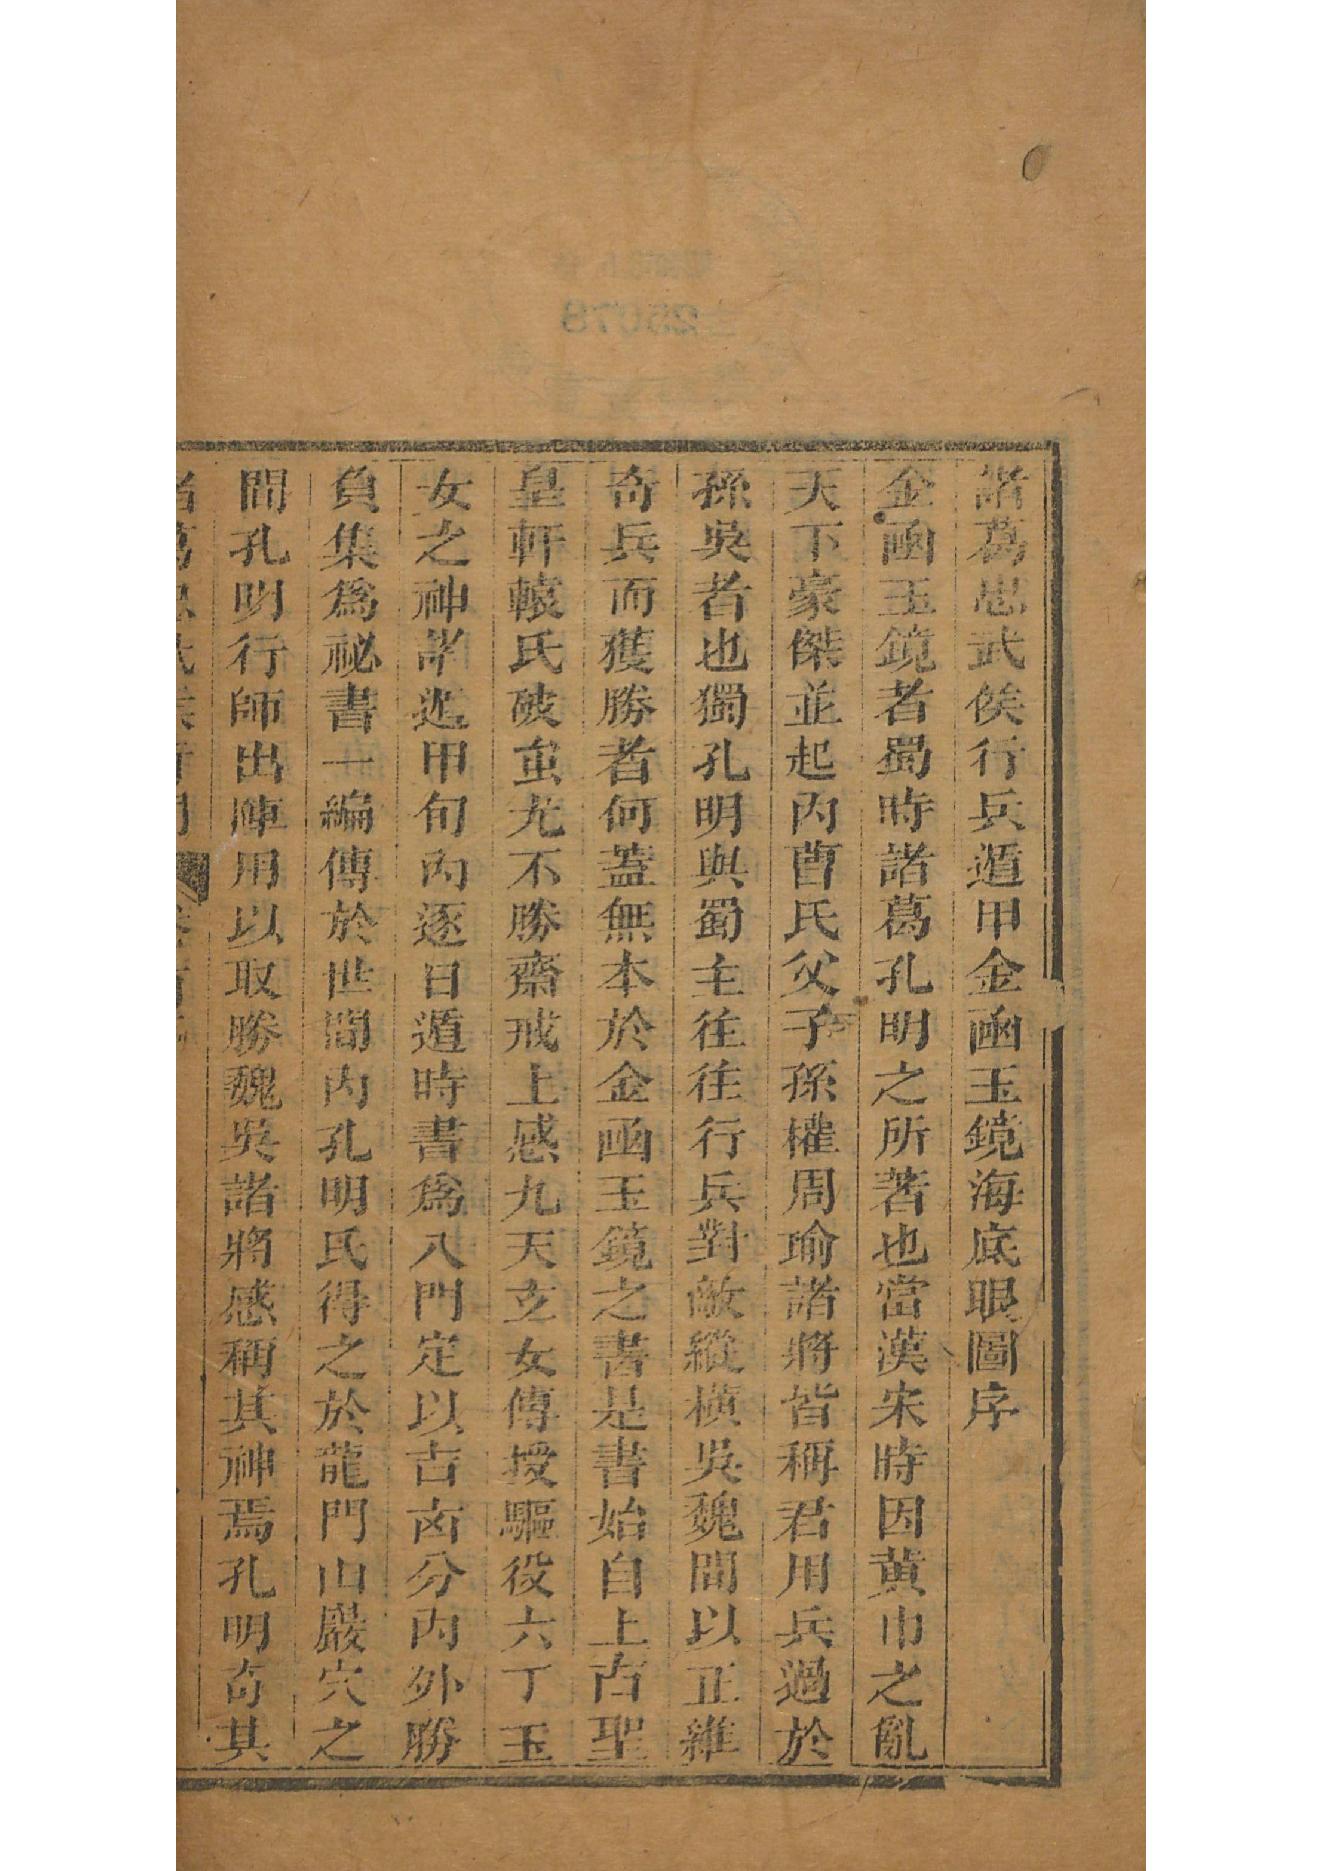 諸葛忠武侯行兵遁甲金函玉鏡海底眼圖序
金函玉鏡者蜀時諸葛孔明之所著也當漢末時因黃巾之亂
天下豪傑並起內曹氏父子孫權周瑜諸將皆稱君用兵過於
孫吳者也獨孔明與蜀主往往行兵對敵縱橫吳魏間以正維
奇兵而獲勝者何蓋無本於金函玉鏡之書是書始自上古聖
皇軒轅氏破蚩尤不勝齋戒上感九天玄女傳授驅役六丁玉
女之神諸遁甲旬內逐日遁時書爲八門定以吉凶分內外勝
負集爲祕書一編傳於世間內孔明氏得之於龍門山巖穴之
間孔明行師出陣用以取勝魏吳諸將感稱其神焉孔明奇其